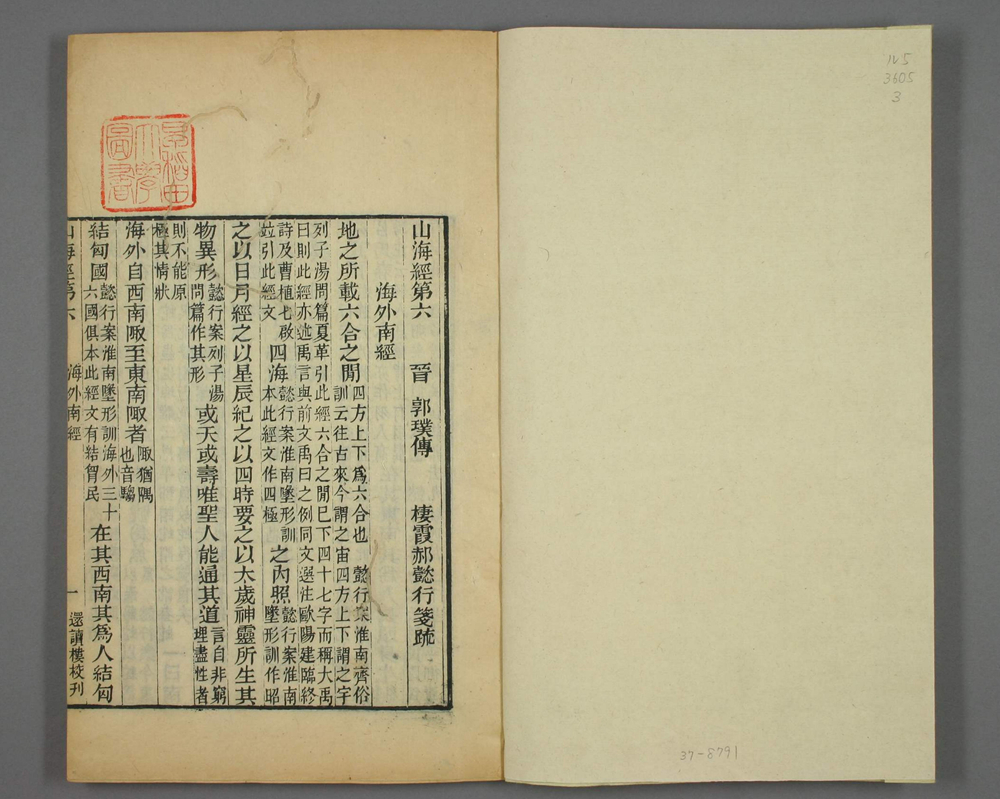 ル5
3605
3
37-8791
早稲田
大學
圖書
山海經第六　晉　郭璞傳　棲霞郝懿行箋疏
海外南經
地之所載六合之閒四方上下爲六合也　懿行案淮南齊俗訓云往古來今謂之宙四方上下謂之宇
列子湯問篇夏革引此經六合之閒巳下四十七字而稱大禹曰則此經亦述禹言與前文禹曰之例同文選注歐陽建臨終
詩及曹植七啟竝引此經文四海懿行案淮南墬形訓本此經文作四極之內照懿行案淮南墬形訓作昭
之以日月經之以星辰紀之以四時要之以太歲神靈所生其
物異形懿行案列子湯問篇作其形或夭或壽唯聖人能通其道言自非窮理盡性者
則不能原極其情狀
海外自西南陬至東南陬者陬猶隅也音騶
結匈國懿行案淮南墬形訓海外三十六國俱本此經文有結胷民在其西南其爲人結匈
山海經第六　海外南經　一　還讀樓校刋